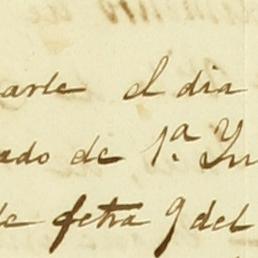 arle el dia
ado de 1.ª In
de fetra 9 del